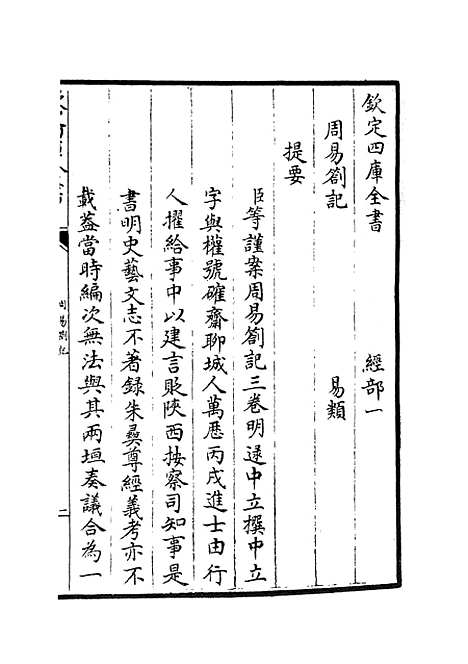 欽定四庫全書 經部一
周易劄記 易類
提要
臣等謹案周易劄記三卷明逯中立撰中立
字與權號確齋聊城人萬厯丙戌進士由行
人擢給事中以建言貶陜西按察司知事是
書明史藝文志不著録朱彛尊經義考亦不
載葢當時編次無法與其兩垣奏議合為一
周易劄記